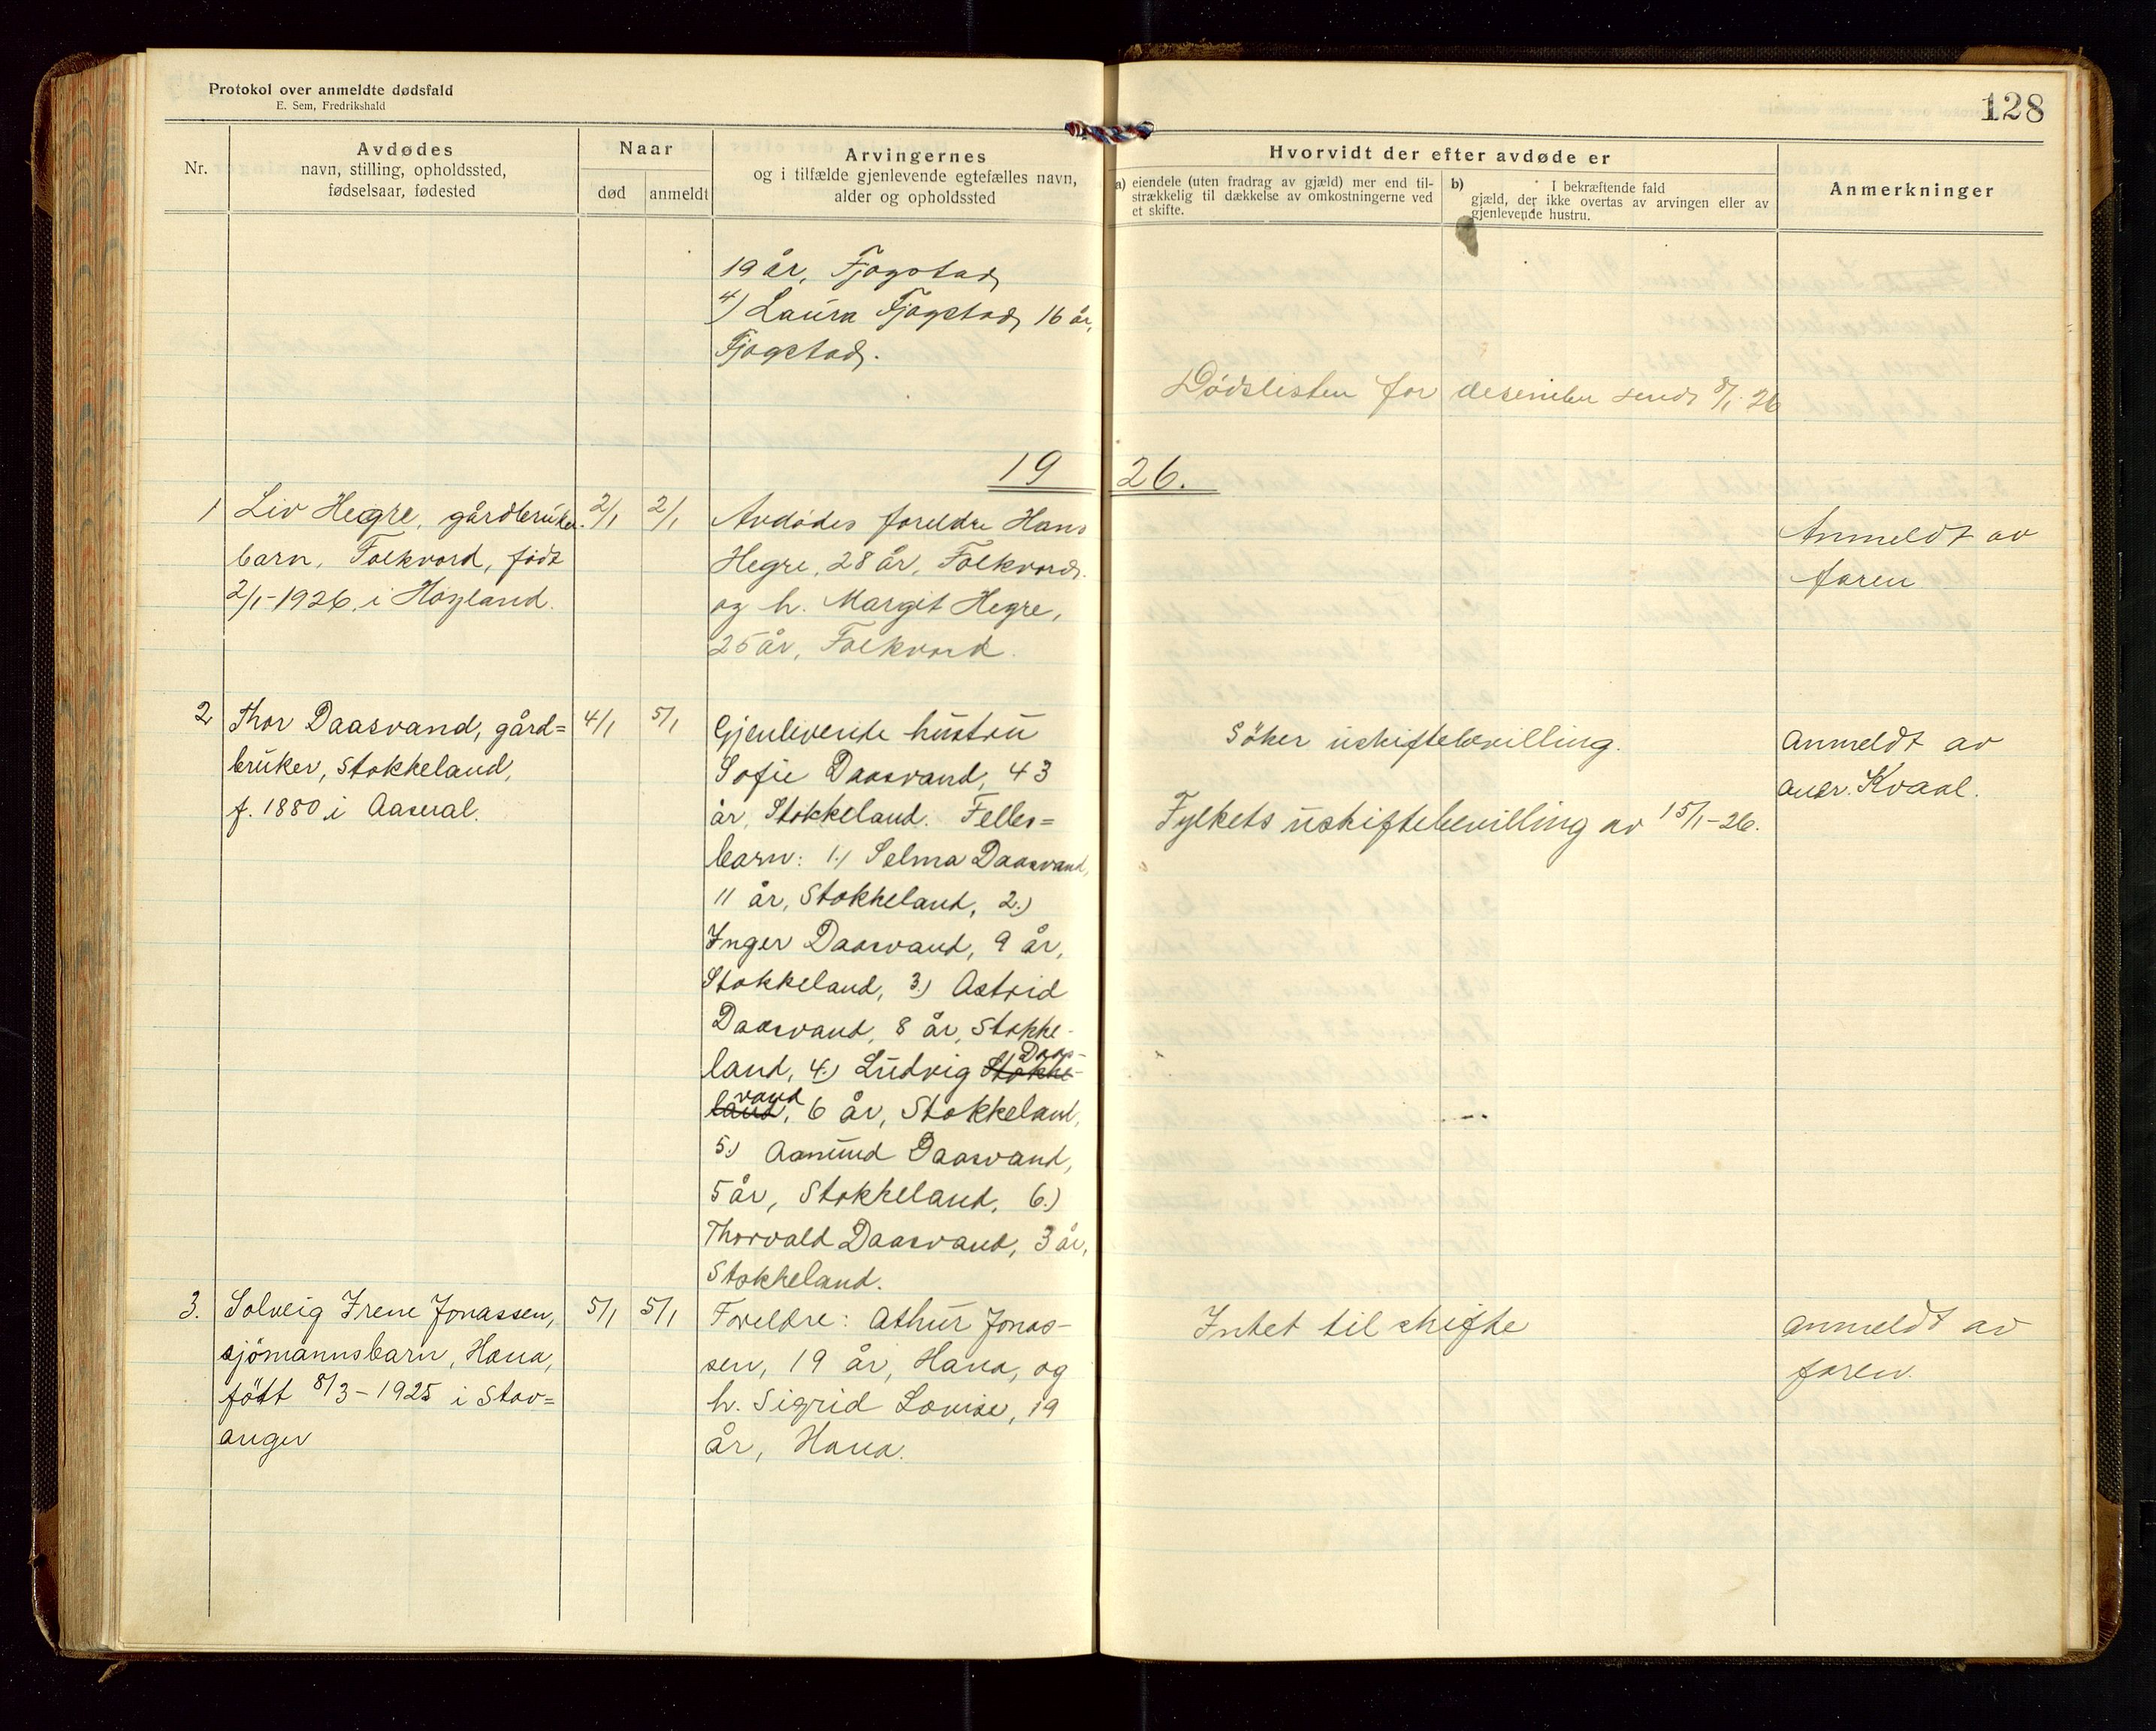 Protokol over anmeldte dødsfald
E. Sem, Fredrikshald
128
Nr.
Avdødes
navn, stilling, opholdssted,
fødselsaar, fødested
Naar
død
anmeldt
Arvingernes
og i tilfælde gjenlevende egtefælles navn,
alder og opholdssted
Hvorvidt der efter avdøde er
a) eiendele (uten fradrag av gjæld) mer end til-
strækkelig til dækkelse av omkostningerne ved
et skifte.
b) I bekræftende fald
gjæld, der ikke overtas av arvingen eller av
gjenlevende hustru.
Anmerkninger
19 år, Fjogstad,
4) Laura Fjogstad, 16 år,
Fjogstad.
Dödslisten for desember sendt 8/1 26
1926.
1
Liv Hegre, gårdbruker-
barn, Folkvord, födt
2/1-1926, i Höyland.
2/1
2/1
Avdödes foreldre Hans
Hegre, 28 år, Folkvord,
og h. Margit Hegre,
25 år, Folkvord.
Anmeldt av
faren
2
Thor Daasvand, gård=
bruker, Stokkeland,
f. 1880 i Aaseral.
4/1
5/1
Gjenlevende hustru
Sofie Daasvand, 43
år, Stokkeland. Felles=
barn: 1.) Selma Daasvand,
11 år, Stokkeland, 2.)
Inger Daasvand, 9 år,
Stokkeland, 3.) Astrid
Daasvand, 8 år, Stokke-
land, 4.) Ludvig Stokke- Daas-
land vand, 6 år, Stokkeland,
5.) Aanund Daasvand,
5 år, Stokkeland, 6.)
Thorvald Daasvand, 3 år,
Stokkeland.
Söker uskiftebevilling.
Fylkets uskiftebevilling av 15/1-26.
Anmeldt av
Kvaal.
3.
Solveig Irene Jonassen,
sjömannsbarn, Hana,
född 8/3-1925 i Stav=
anger
5/1
5/1
Foreldre: Athur Jonas-
sen, 19 år, Hana, og
h. Sigrid Lovise, 19
år, Hana.
Intet til skifte
Anmeldt av
faren.